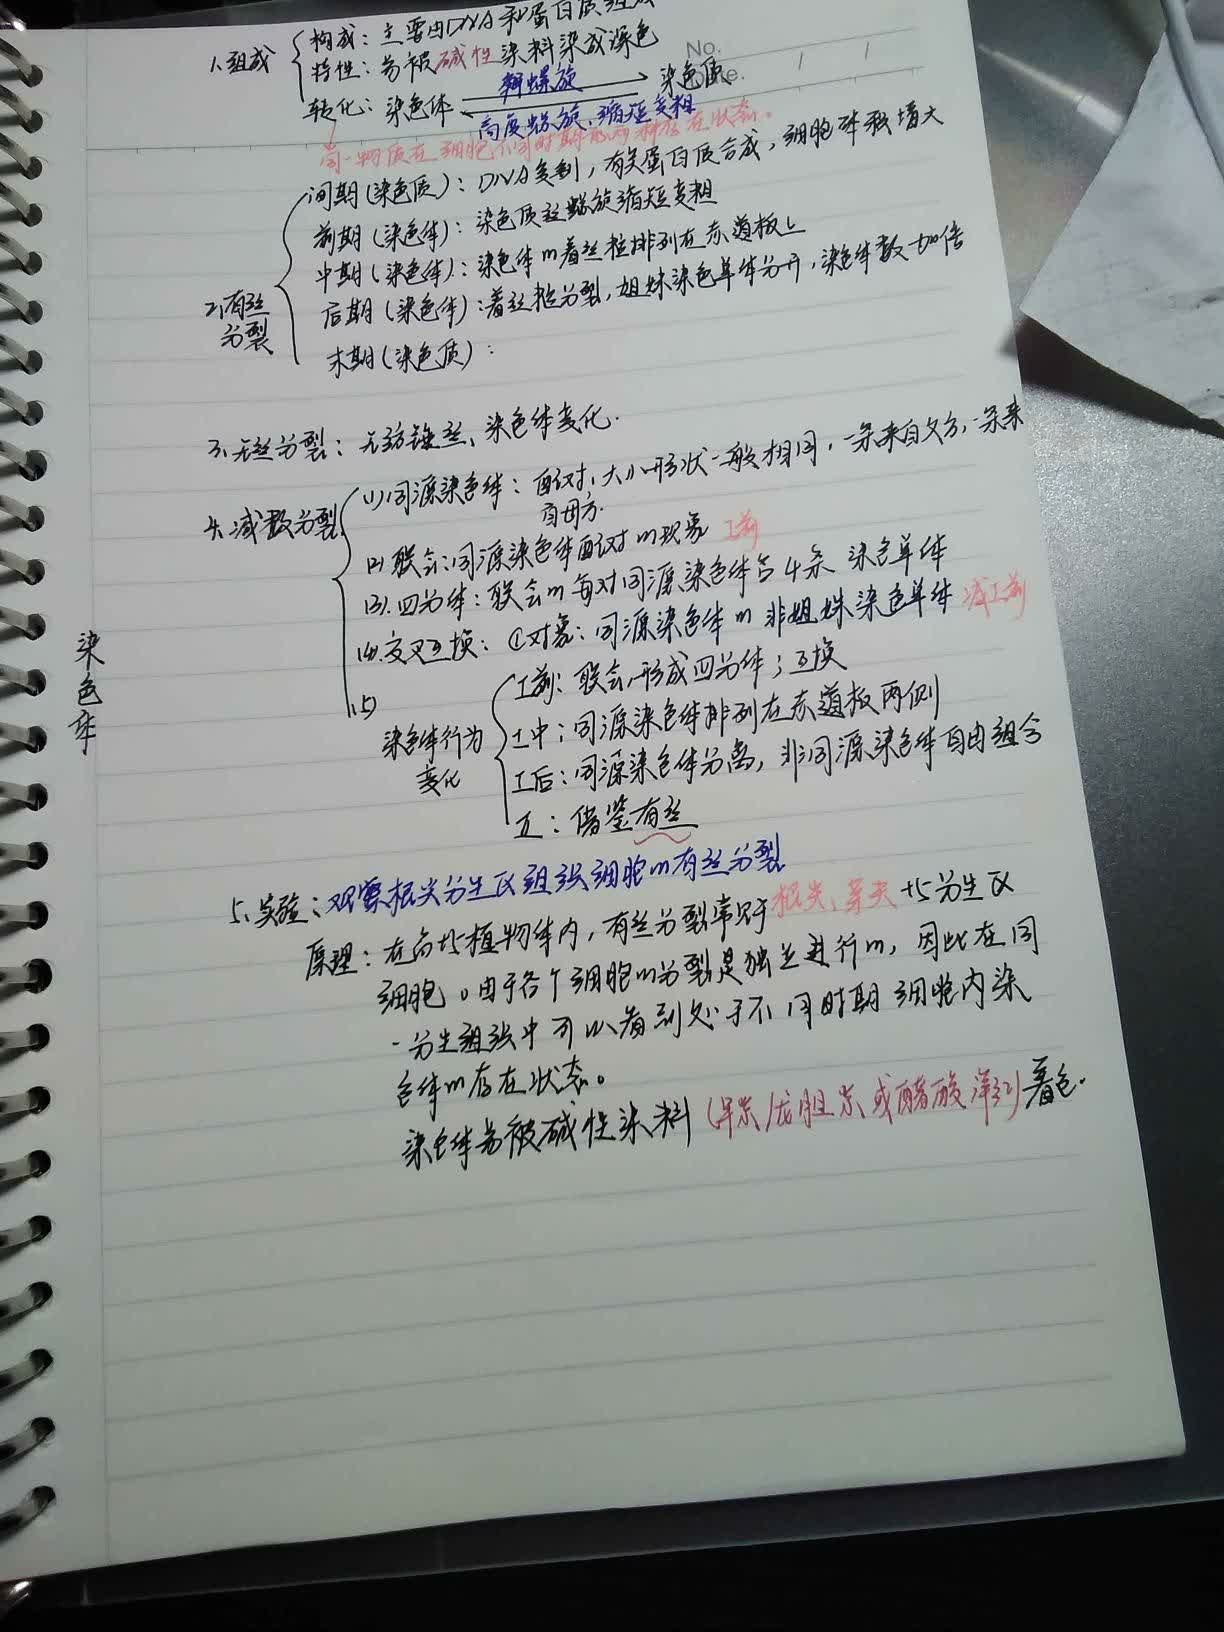 1.组成
构成：主要由DNA和蛋白质组成
特性：易被碱性染料染成深色
No.
Date.
转化：染色体 解螺旋 染色质
高度螺旋、缩短变粗
同一物质在细胞不同时期的两种存在状态。
间期(染色质)：DNA复制，有关蛋白质合成，细胞体积增大
前期(染色体)：染色质丝螺旋缩短变粗
中期(染色体)：染色体m着丝粒排列在赤道板上
2.有丝分裂
后期(染色体)：着丝粒分裂，姐妹染色单体分开，染色体数加倍
末期(染色质)：
3.无丝分裂：无纺锤丝、染色体变化.
4.减数分裂
(1)同源染色体：配对，大小形状一般相同，一条来自父方，一条来
自母方.
(2)联会：同源染色体配对m现象 I前
(3).四分体：联会m每对同源染色体含4条染色单体
(4).交叉互换：①对象：同源染色体m非姐妹染色单体 减I前
染色体
(5)
染色体行为变化
I前：联会，形成四分体；互换
I中：同源染色体排列在赤道板两侧
I后：同源染色体分离，非同源染色体自由组合
II：借鉴有丝
5.实验：观察根尖分生区组织细胞m有丝分裂
原理：在高等植物体内，有丝分裂常见于根尖、芽尖等分生区
细胞。由于各个细胞m分裂是独立进行m，因此在同
一分生组织中可以看到处于不同时期细胞内染
色体m存在状态。
染色体易被碱性染料(甲紫/龙胆紫或醋酸洋红)着色.